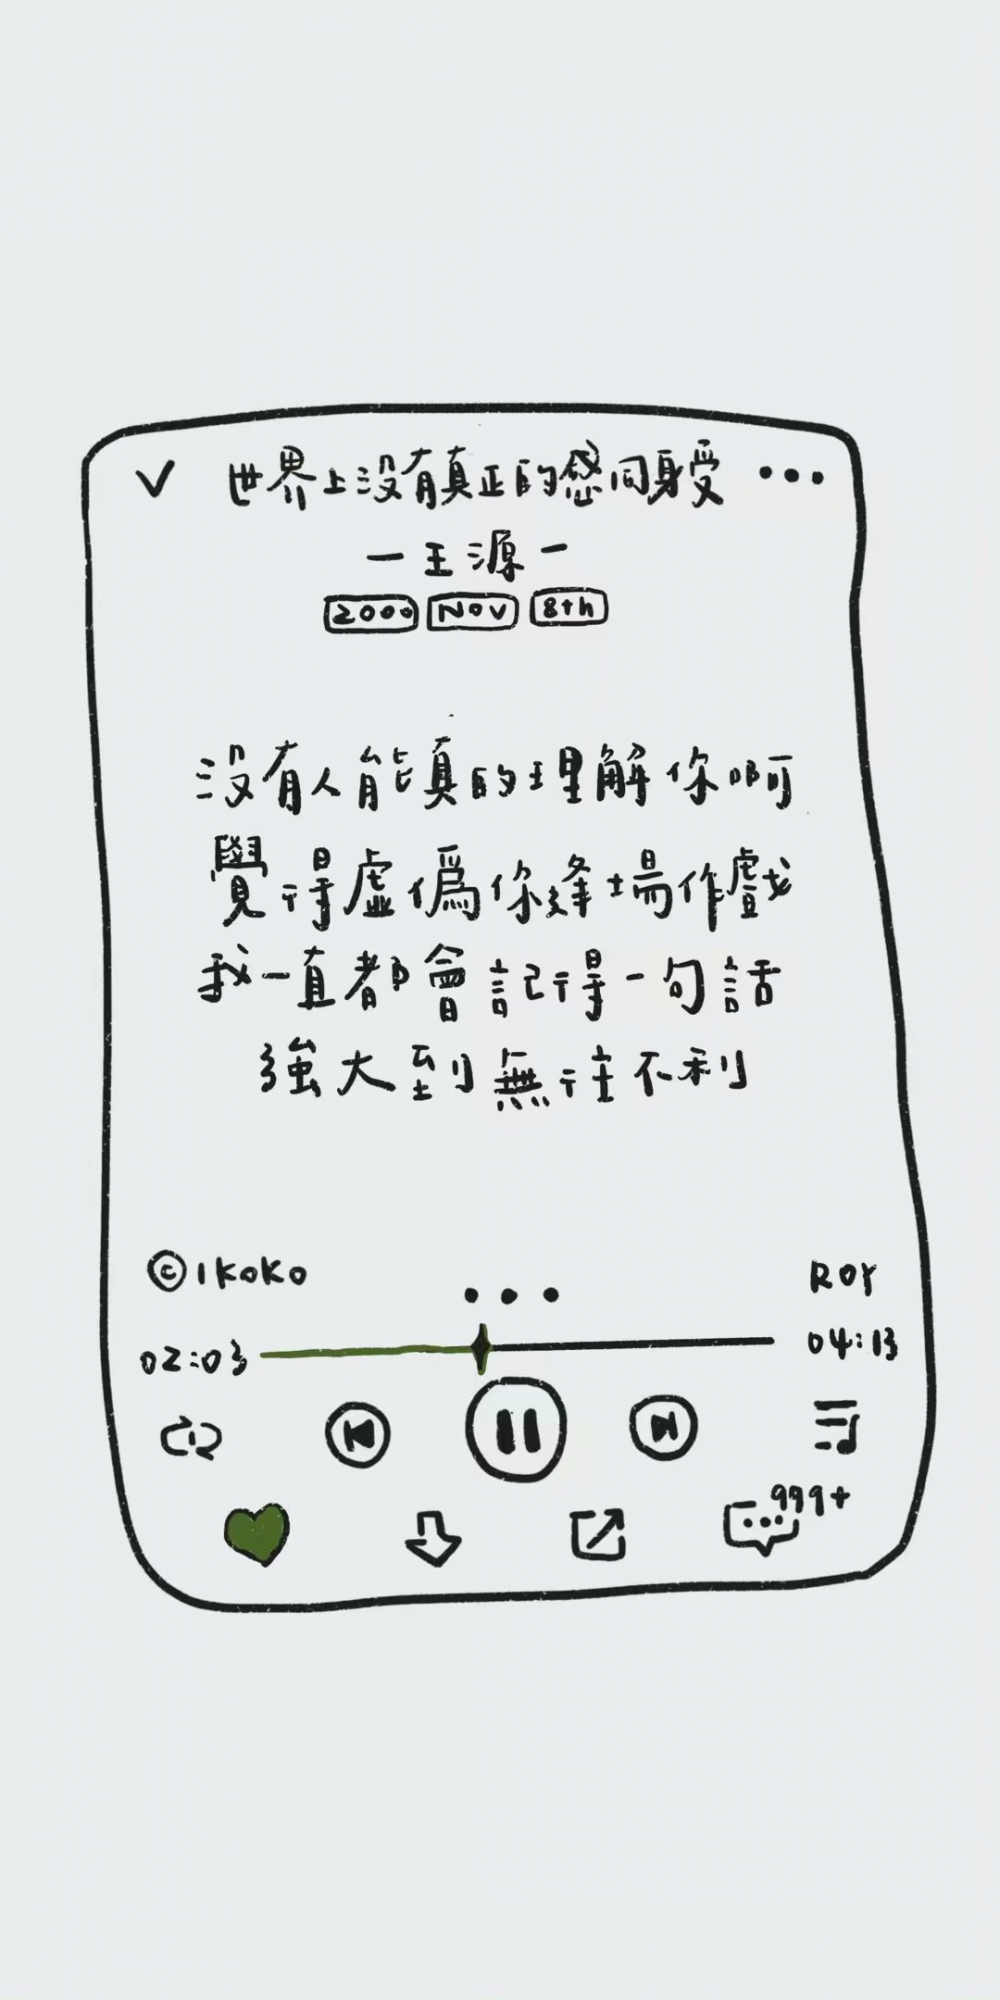 世界上没有真正的感同身受
一王源一
2000 NOV 8th
没有人能真的理解你啊
覺得虛偽你逢場作戲
我一直都會記得一句話
強大到無往不利
©IKOKO
ROY
02:03
04:13
999+